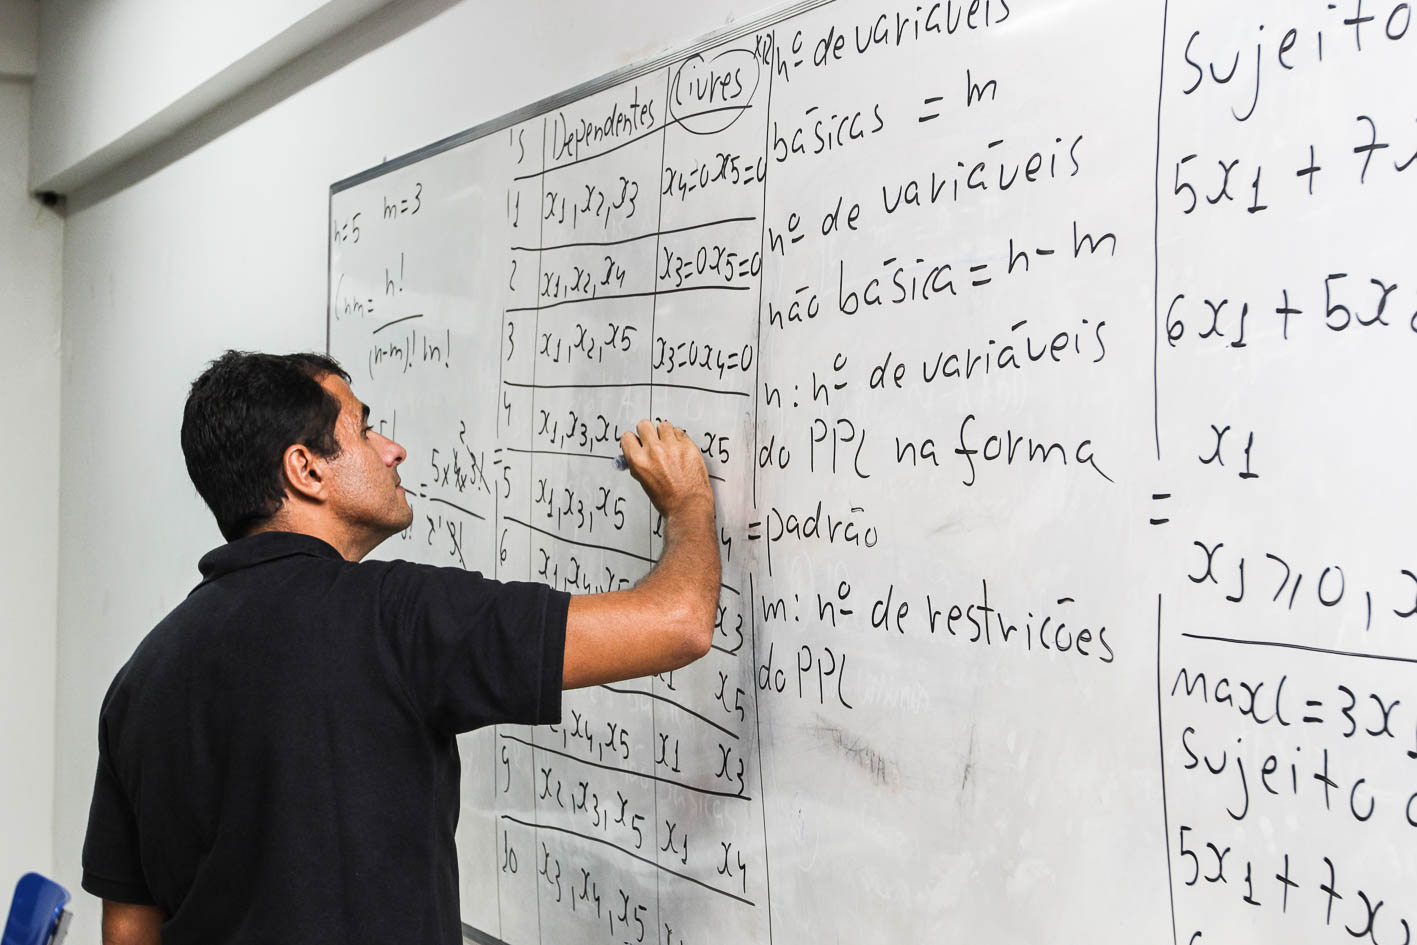 n=5 m=3
n!
(n-m)! m!
Dependentes Livres
1 x1, x2, x3 x4=0 x5=0
2 x1, x2, x4 x3=0 x5=0
3 x1, x2, x5 x3=0 x4=0
4 x1, x3, x4 x5
5 x1, x3, x5
6 x1, x4, x5 x3
x5
x4, x5 x1 x3
9 x2, x3, x5 x1 x4
10 x3, x4, x5
nº de variáveis
básicas = m
nº de variáveis
não básica = n - m
n: nº de variáveis
do PPL na forma
padrão
m: nº de restricões
do PPL
Sujeito
5x1 + 7
6x1 + 5x
x1
x1 ≥ 0,
Max L = 3x1
Sujeito
5x1 + 7x